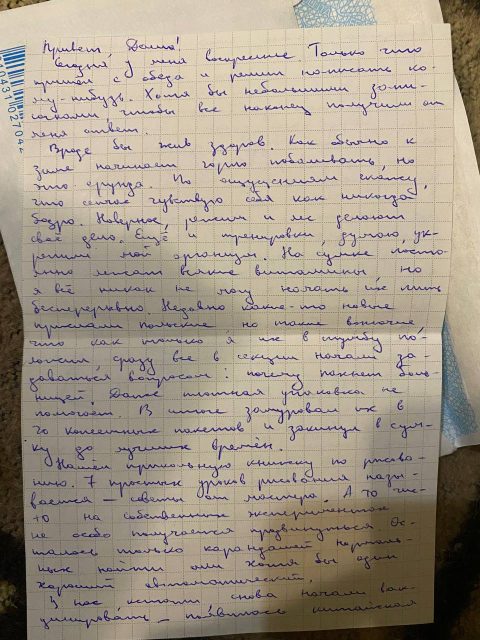 Привет, Даша!
Сегодня у меня воскресенье. Только что
пришел с обеда и решил написать ко-
му-нибудь. Хотя бы небольшими запи-
сочками, чтобы все наконец получили от
меня ответ.
Вроде бы жив, здоров. Как обычно к
зиме начинает горло побаливать, но
это ерунда. По ощущениям скажу,
что сейчас чувствую себя как никогда
бодро. Наверное, режим и лес делают
своё дело. Ещё и тренировки, думаю, ук-
репили мой организм. На сумке посто-
янно лежат всякие витамины, но
я всё никак не могу начать их пить
беспрерывно. Недавно какие-то новые
прислали польские но такие вонючие
что как только я их в тумбу по-
ложил, сразу все в секции начали за-
даваться вопросом: почему пахнет боль-
ницей. Даже плотная упаковка не
помогает. В итоге замуровал их в
10 пакетов и закинул в сум-
ку до лучших времён.
Нашел прикольную книжку по рисова-
нию. 7 простых уроков рисования назы-
вается – советы от мастера. А то чис-
то на собственных экспериментах
не особо получается продвинуться. Ос-
талось только карандашей нормаль-
ных найти или хотя бы один
хороший автоматический.
У нас кстати снова начали вак-
цинировать – появилась китайская
043110627042